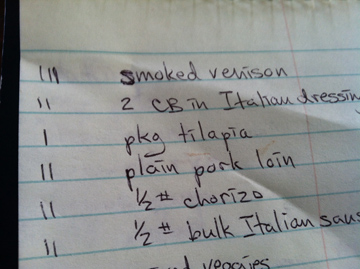 III smoked venison
II 2 CB in Italian dressin
I pkg tilapia
II plain pork loin
II 1/2 # chorizo
II 1/2 # bulk Italian saus
veggies